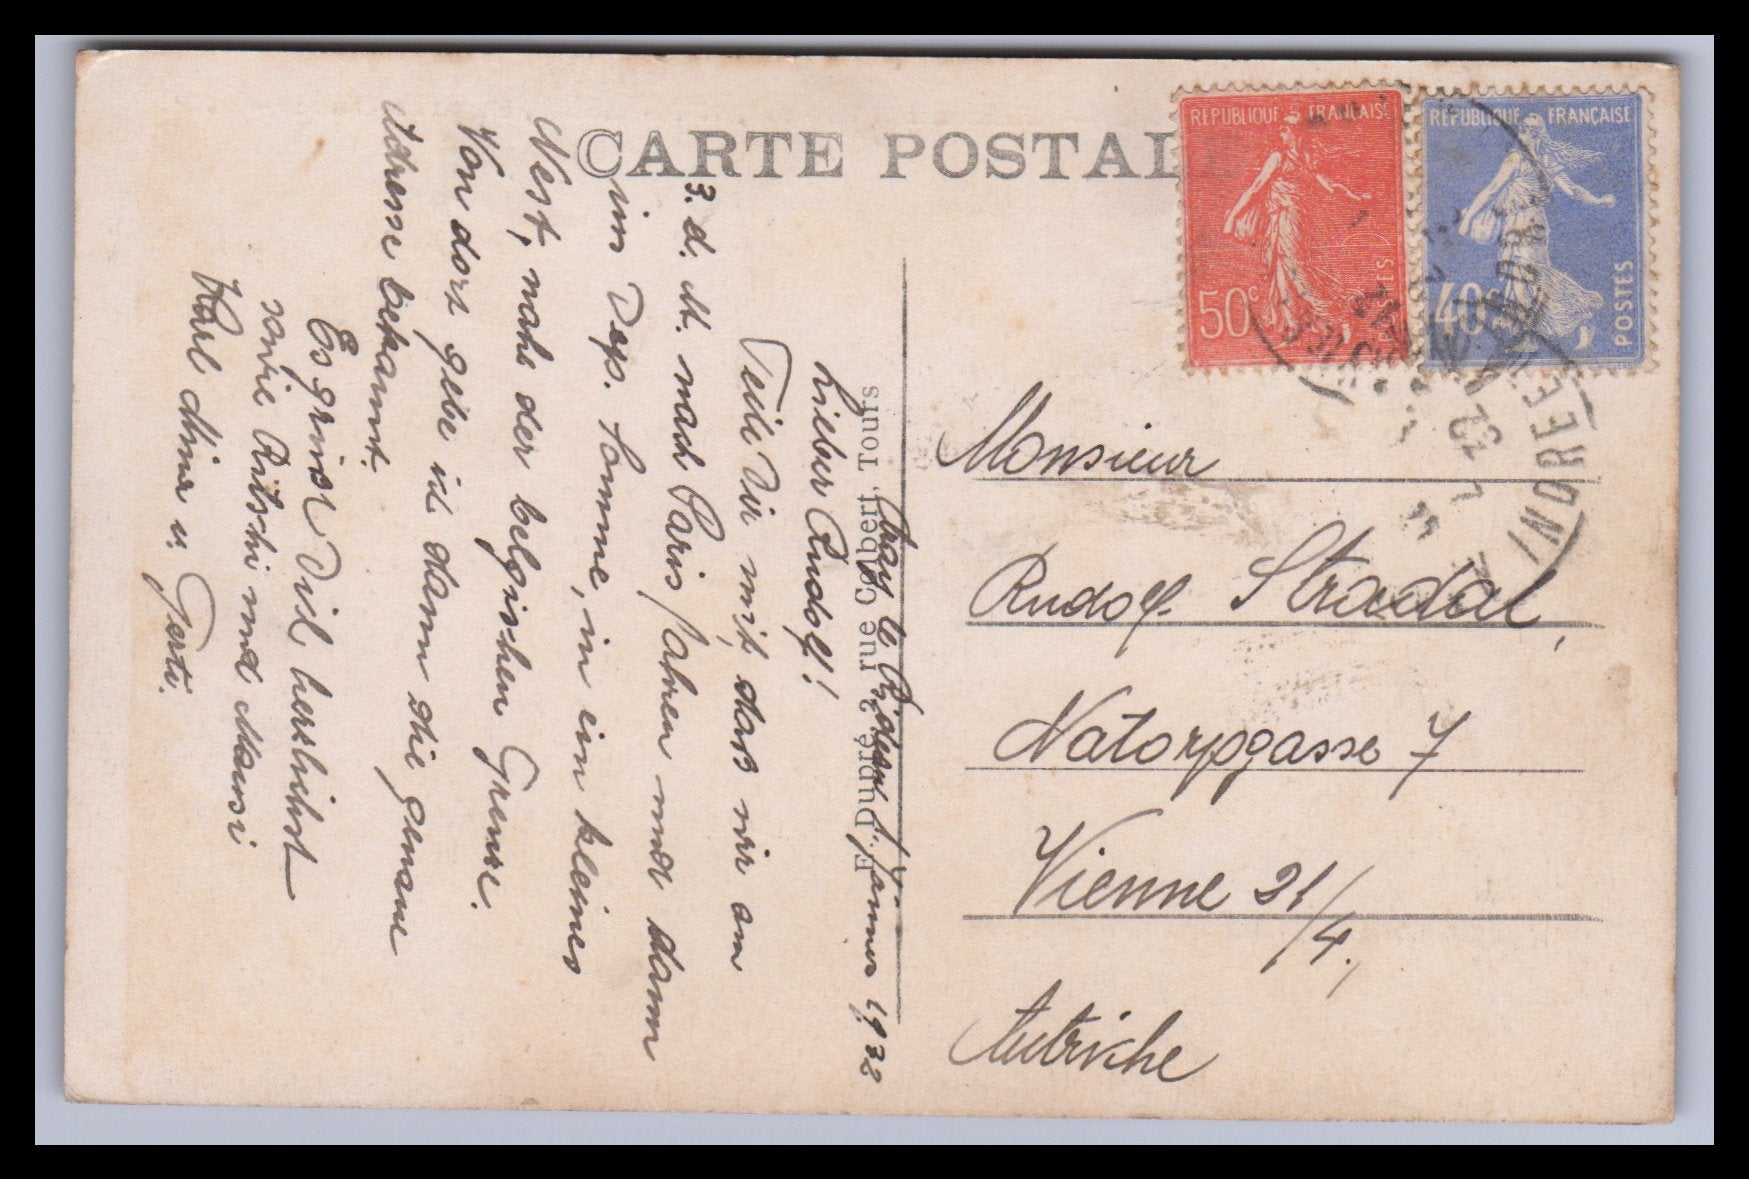 CARTE POSTALE
RÉPUBLIQUE FRANÇAISE
50c
POSTES
RÉPUBLIQUE FRANÇAISE
40c
POSTES
E. Dupré, 2, rue Colbert, Tours
Azay le Rideau 1. Jänner 1932
Lieber Rudolf!
Teile Dir mit, dass wir am
3. d. M. nach Paris fahren und dann
im Dep. Somme, in ein kleines
Nest, nahe der belgischen Grenze.
Von dort gebe ich dann die genaue
Adresse bekannt.
Es grüsst Dich herzlichst
sowie Ritschi und Mausi
Karl Mina u. Gerti.
Monsieur
Rudolf Stradal,
Natorpgasse 7
Vienne 21/4.,
Autriche